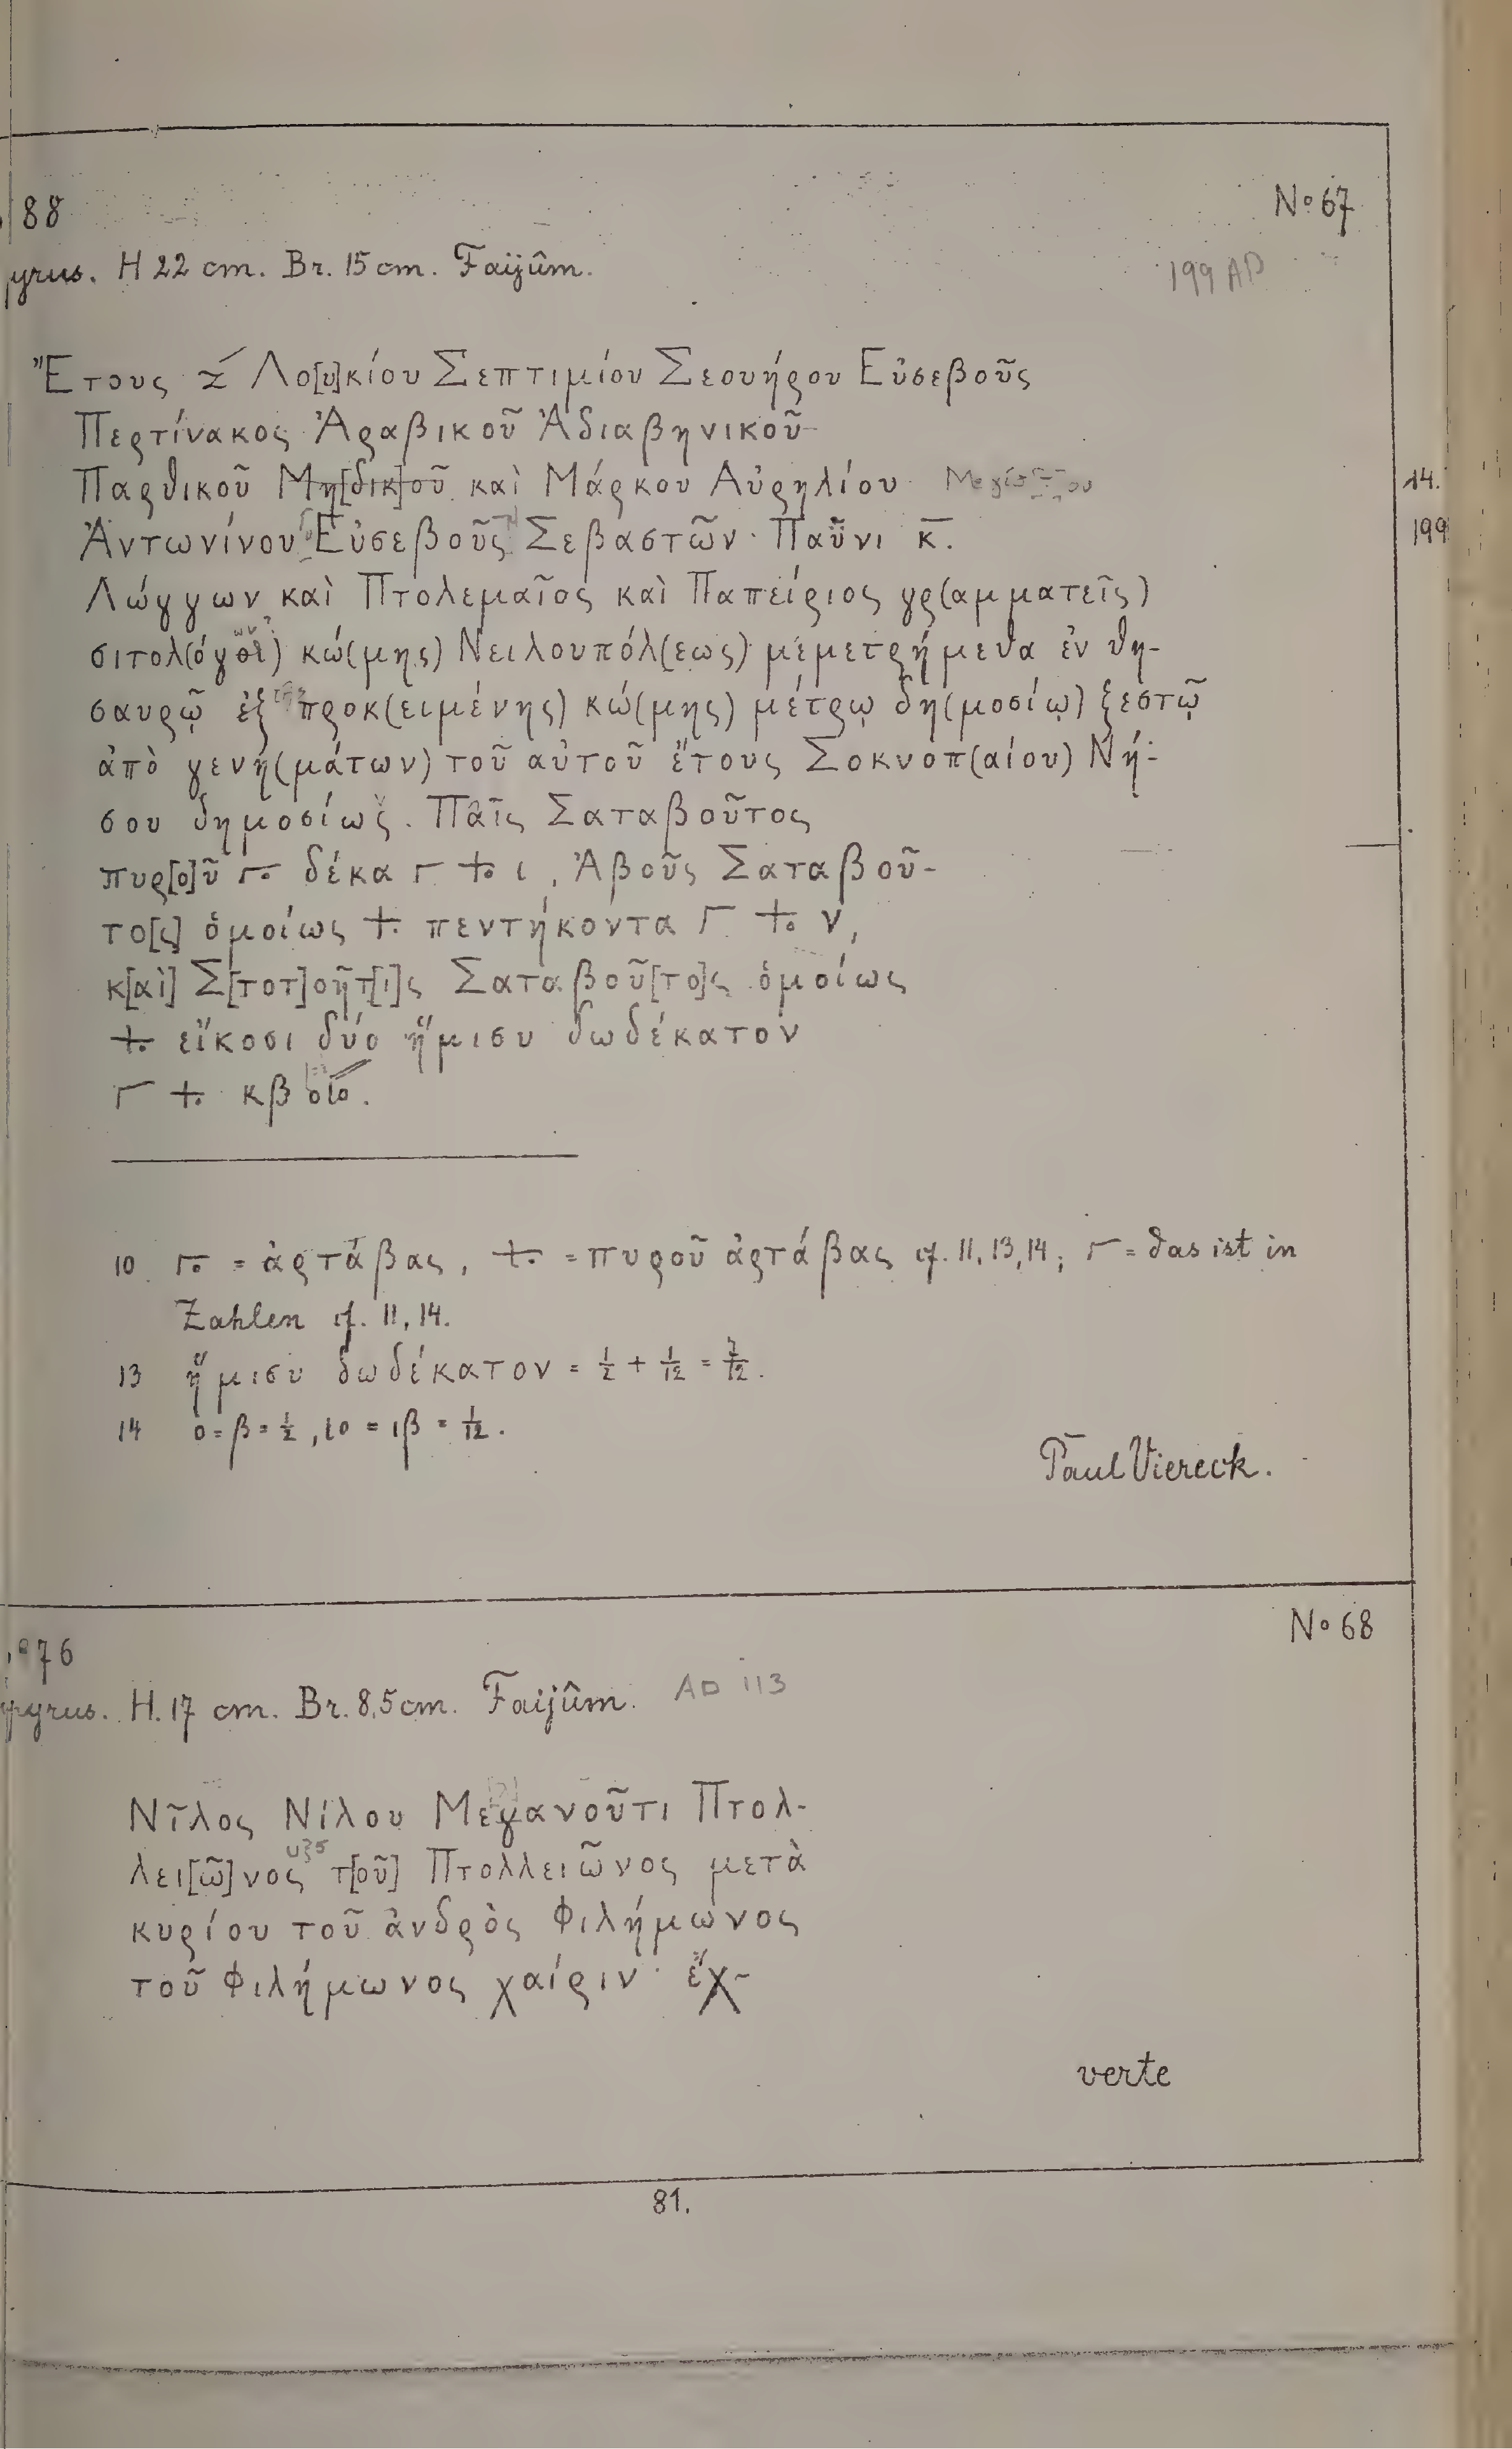 88
No 67
yrus. H 22 cm. Br. 15 cm. Faijûm.
199 AD
Ἔτους ζ´ Λο[υ]κίου Σεπτιμίου Σεουήρου Εὐσεβοῦς
Περτίνακος Ἀραβικοῦ Ἀδιαβηνικοῦ
Παρθικοῦ Μη[δικ]οῦ καὶ Μάρκου Αὐρηλίου
14.
Ἀντωνίνου Εὐσεβοῦς Σεβαστῶν· Παῦνι κ̅.
199
Λώγγων καὶ Πτολεμαῖος καὶ Παπείριος γρ(αμματεῖς)
σιτολ(όγοι) κώ(μης) Νειλουπόλ(εως) μεμετρήμεθα ἐν θη-
σαυρῷ ἐξ προκ(ειμένης) κώ(μης) μέτρῳ δη(μοσίῳ) ξεστῷ
ἀπὸ γενη(μάτων) τοῦ αὐτοῦ ἔτους Σοκνοπ(αίου) Νή-
σου δημοσίως. Παῖς Σαταβοῦτος
πυρ[ο]ῦ 𐅽 δέκα Γ +̣ ι, Ἀβοῦς Σαταβοῦ-
το[ς] ὁμοίως +̣ πεντήκοντα Γ +̣ ν,
κ[αὶ] Σ[τοτ]οῆτ[ι]ς Σαταβοῦ[το]ς ὁμοίως
+̣ εἴκοσι δύο ἥμισυ δωδέκατον
Γ +̣ κβ οιο.
10 𐅽 = ἀρτάβας, +̣ = πυροῦ ἀρτάβας cf. 11, 13, 14; Γ = das ist in
Zahlen cf. 11, 14.
13 ἥμισυ δωδέκατον = 1/2 + 1/12 = 7/12.
14 ο = β = 1/2, ιο = ιβ = 1/12.
Paul Viereck.
No 68
76
pyrus. H. 17 cm. Br. 8,5 cm. Faijûm. AD 113
Νῖλος Νίλου Μεγανοῦτι Πτολ-
λει[ῶ]νος τ[οῦ] Πτολλειῶνος μετὰ
κυρίου τοῦ ἀνδρὸς Φιλήμωνος
τοῦ Φιλήμωνος χαίριν· ἔχ-
verte
81.